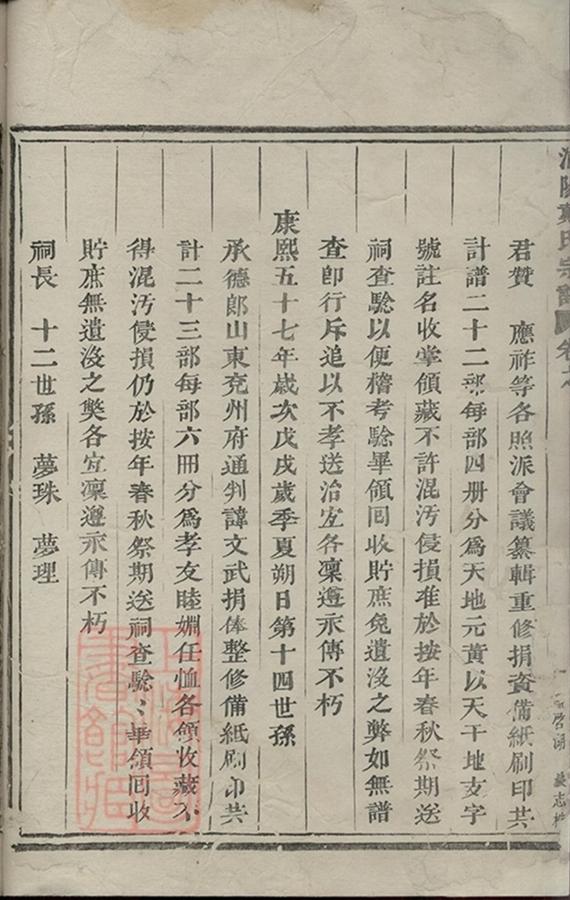 君贊　應祚等各照派會議纂輯重修捐資備紙刷印共
計譜二十二部每部四册分爲天地元黃以天干地支字
號註名收掌領藏不許混汚侵損准於按年春秋祭期送
祠查騐以便稽考騐畢領囘收貯庶免遺沒之弊如無譜
查卽行斥追以不孝送治宜各凜遵永傳不朽
康熙五十七年歲次戊戌歲季夏朔日第十四世孫
承德郎山東兖州府通判諱文武捐俸整修備紙刷印共
計二十三部每部六冊分爲孝友睦婣任恤各領收藏不
得混汚侵損仍於按年春秋祭期送祠查騐〻畢領囘收
貯庶無遺沒之獘各宜凜遵永傳不朽
祠長　十二世孫　夢珠　夢理